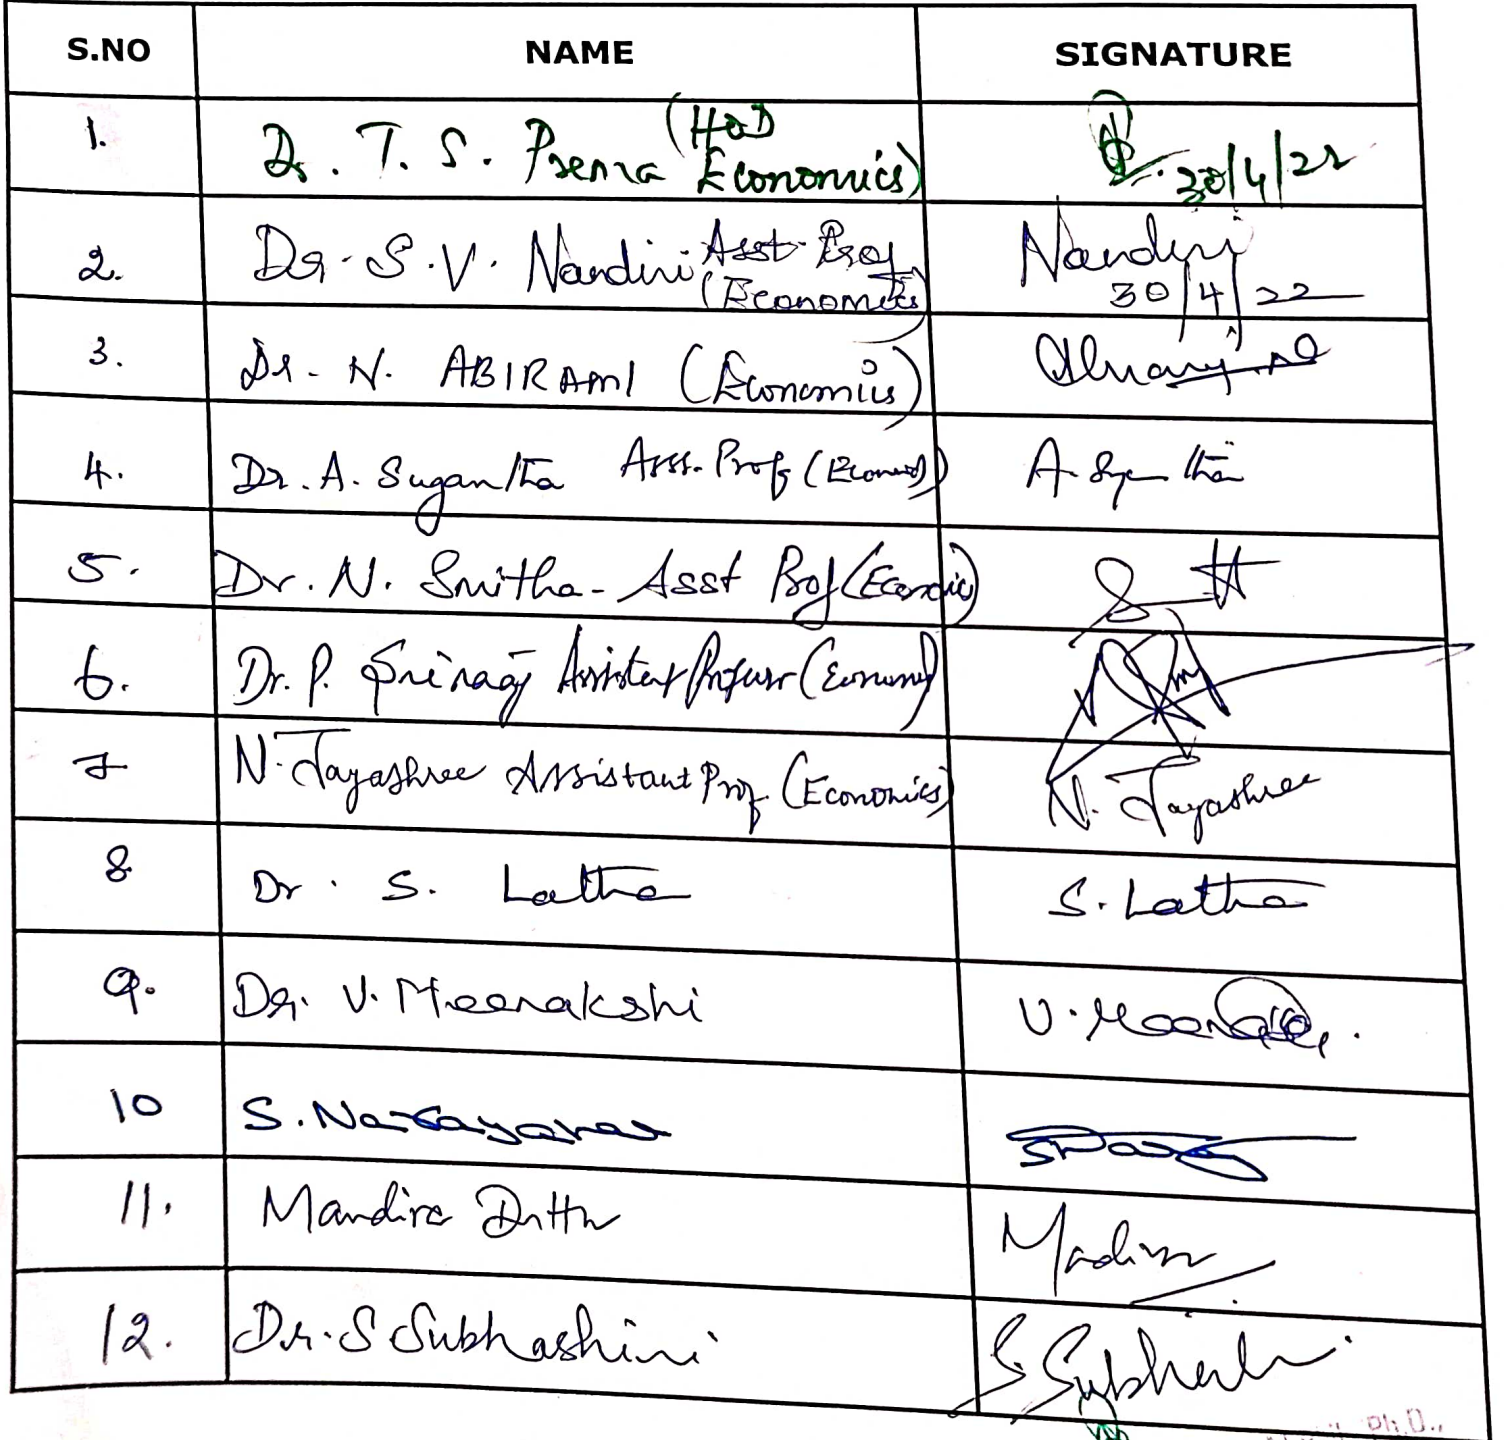 S.NO NAME SIGNATURE
1. Dr. T. S. Prema (HOD Economics) 30/4/22
2. Dr. S. V. Nandini Asst Prof (Economics) Nandini 30/4/22
3. Dr. N. ABIRAMI (Economics)
4. Dr. A. Sugantha Asst. Prof (Economics) A. Sugantha
5. Dr. N. Smitha - Asst Prof (Economics)
6. Dr. P. Sriraaj Assistant Professor (Economics)
7 N. Jayashree Assistant Prof. (Economics) N. Jayashree
8 Dr. S. Latha S. Latha
9. Dr. V. Meenakshi V. Meenakshi
10 S. Narayanan
11. Mandira Dutta
12. Dr. S Subhashini S. Subhashini
Ph.D.,